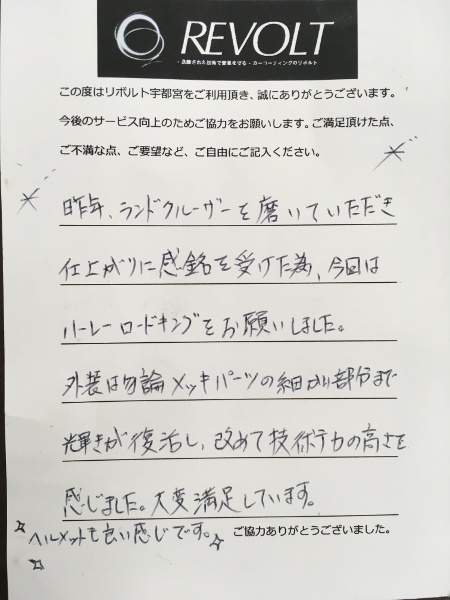 REVOLT
- 洗練された技術で愛車を守る - カーコーティングのリボルト
この度はリボルト宇都宮をご利用頂き、誠にありがとうございます。
今後のサービス向上のためご協力をお願いします。ご満足頂けた点、
ご不満な点、ご要望など、ご自由にご記入ください。
昨年、ランドクルーザーを磨いていただき
仕上がりに感銘を受けた為、今回は
ハーレーロードキングをお願いしました。
外装は勿論メッキパーツの細かい部分まで
輝きが復活し、改めて技術力の高さを
感じました。大変満足しています。
ヘルメットも良い感じです。
ご協力ありがとうございました。